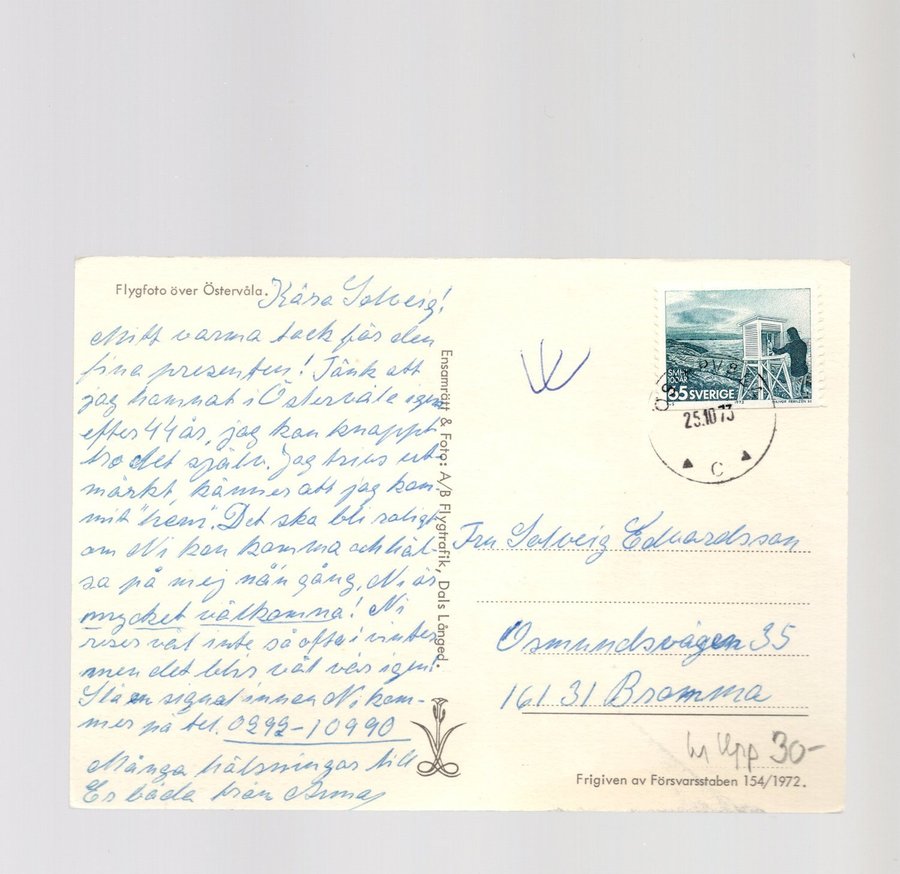 Flygfoto över Östervåla.
Kära Solveig!
Mitt varma tack för den
fina presenten! Tänk att
jag hamnat i Östervåla igen
efter 44 år, jag kan knappt
tro det själv. Jag trivs ut-
märkt, känner att jag kom-
mit "hem". Det ska bli roligt
om Ni kan komma och häl-
sa på mej nån gång, Ni är
mycket välkomna! Ni
reser väl inte så ofta i vinter
men det blir väl vår igen!
Slå en signal innan Ni kom-
mer på tel. 0292-10990
Många hälsningar till
Er båda från Anna
Ensamrätt & Foto: A/B Flygtrafik, Dals Långed.
SVERIGE
65
25.10 73
C
Fru Solveig Edvardsson
Osmundsvägen 35
161 31 Bromma
Upp 30-
Frigiven av Försvarsstaben 154/1972.